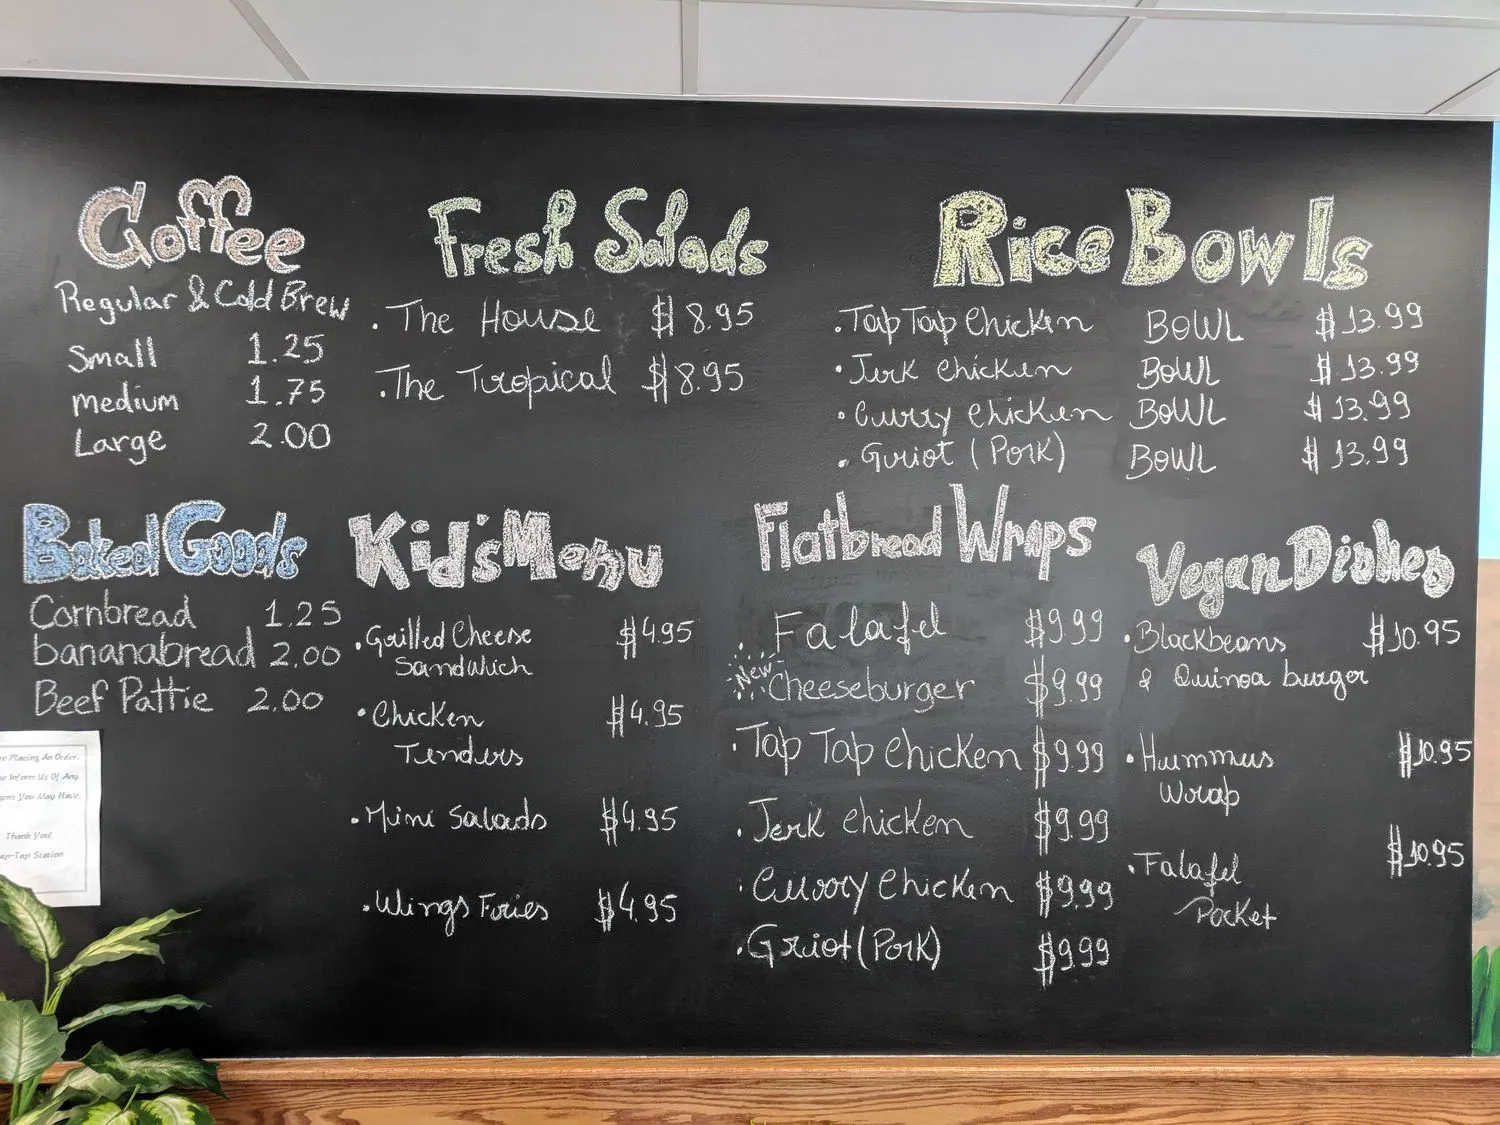 Coffee
Regular & Cold Brew
Small 1.25
Medium 1.75
Large 2.00
Fresh Salads
. The House $8.95
. The Tropical $8.95
Rice Bowls
. Tap Tap Chicken BOWL $13.99
. Jerk chicken BOWL $13.99
. Curry chicken BOWL $13.99
. Griot (Pork) BOWL $13.99
Baked Goods
Cornbread 1.25
bananabread 2.00
Beef Pattie 2.00
Kid's Menu
. Grilled Cheese $4.95
Sandwich
. Chicken $4.95
Tenders
. Mini Salads $4.95
. Wings Fries $4.95
Flatbread Wraps
. Falafel $9.99
New Cheeseburger $9.99
. Tap Tap chicken $9.99
. Jerk chicken $9.99
. Curry chicken $9.99
. Griot (Pork) $9.99
Vegan Dishes
. Blackbeans $10.95
& Quinoa burger
. Hummus $10.95
Wrap
. Falafel $10.95
Pocket
Placing An Order.
Inform Us Of Any
You May Have.
Thank You!
Station